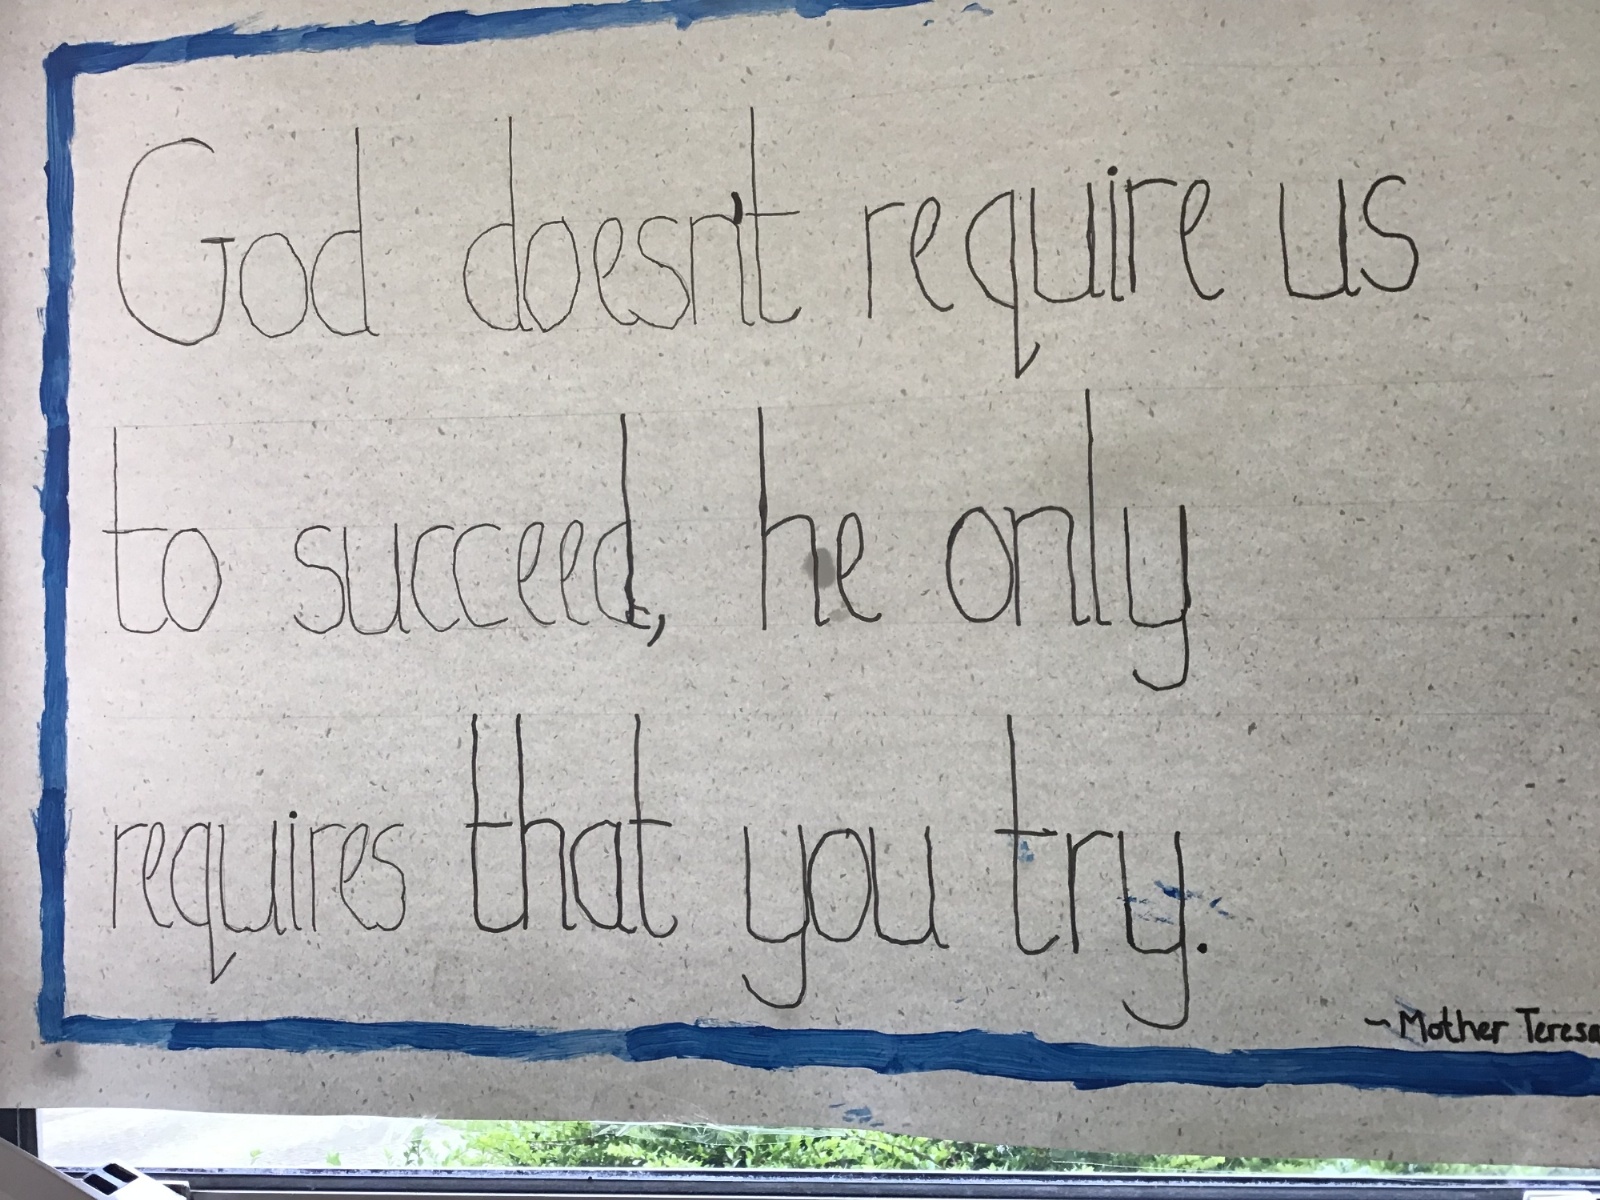 God doesn't require us
to succeed, he only
requires that you try.
~Mother Teresa